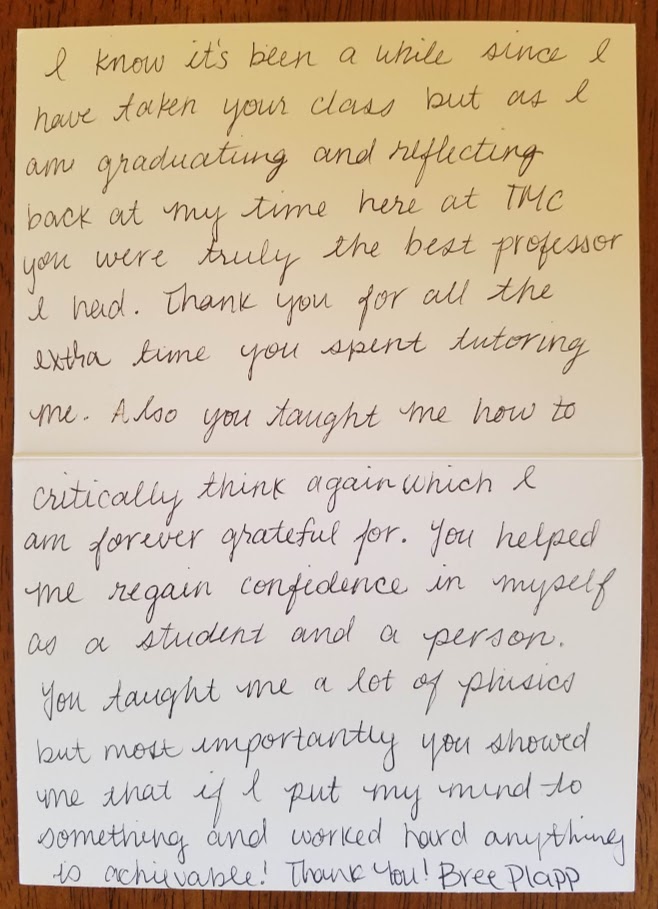 I know it's been a while since I
have taken your class but as I
am graduatiung and reflecting
back at my time here at TMC
you were truly the best professor
I had. Thank you for all the
extra time you spent tutoring
me. Also you taught me how to
critically think again which I
am forever grateful for. You helped
me regain confidence in myself
as a student and a person.
You taught me a lot of phisics
but most importantly you showed
me that if I put my mind to
something and worked hard anything
is achievable! Thank You! Bree Plapp